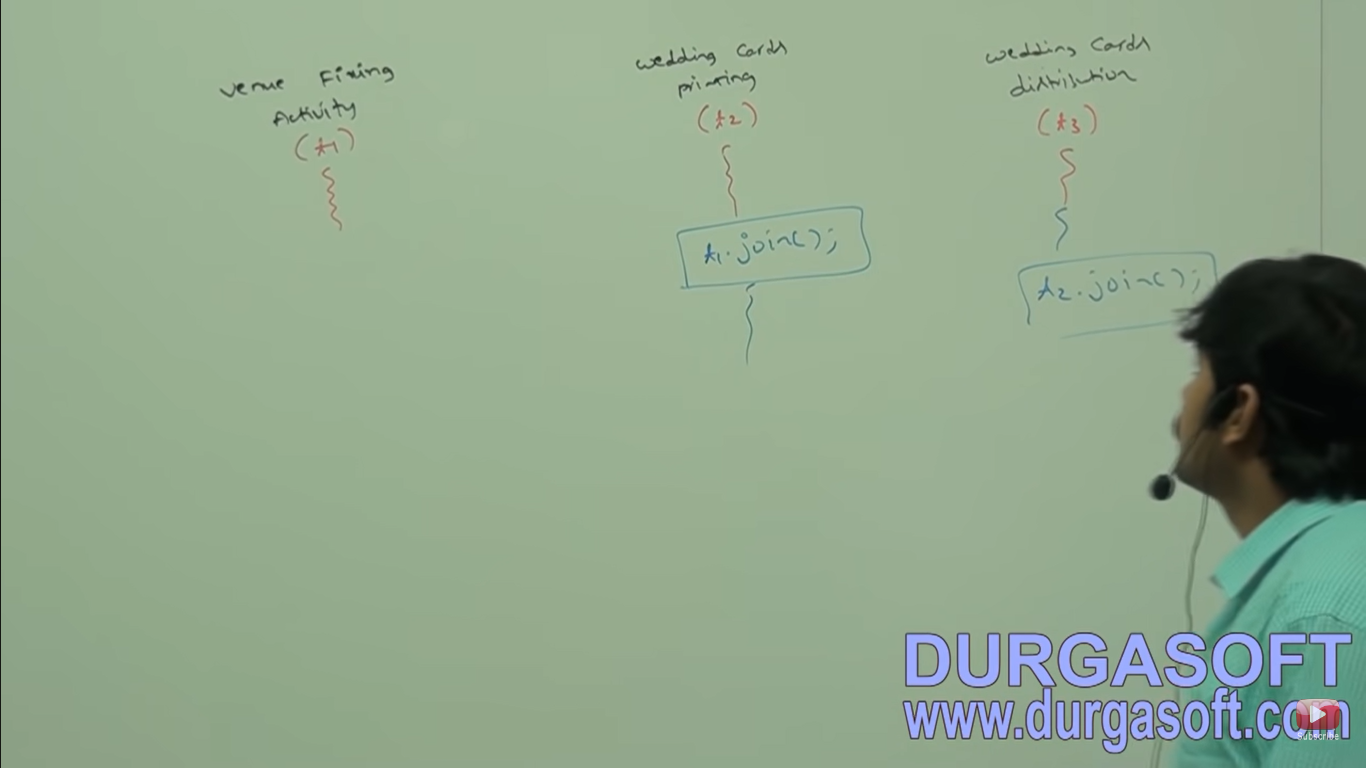 Venue Fixing
Activity
(t1)
wedding Cards
printing
(t2)
t1.join();
wedding Cards
distribution
(t3)
t2.join();
DURGASOFT
www.durgasoft.com
Subscribe